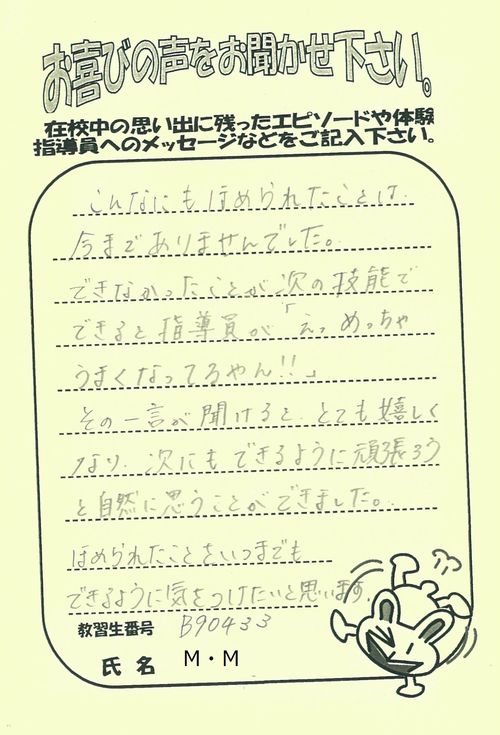 お喜びの声をお聞かせ下さい。
在校中の思い出に残ったエピソードや体験
指導員へのメッセージなどをご記入下さい。
こんなにもほめられたことは
今までありませんでした。
できなかったことが次の技能で
できると指導員が「えっめっちゃ
うまくなってるやん!!」
その一言が聞けると、とても嬉しく
なり、次にもできるように頑張ろう
と自然に思うことができました。
ほめられたことをいつまでも
できるように気をつけたいと思います。
教習生番号 B90433
氏名 M・M